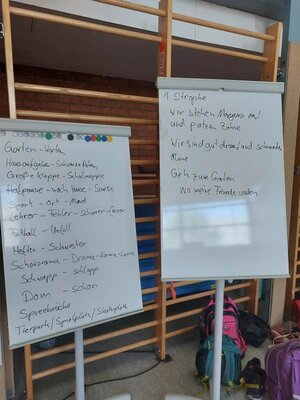 Garten - Warten
Hausaufgabe - Schwarze Raben
Große Klappe - Schulmappe
Hofpause - nach Hause - Sause
Sport - Ort - Mord
Lehrer - Fehler -
Fußball - Unfall
Meister - Schwester
Schokorama - Drama - Karma - Lama
Schwapp - schlapp
Dom - schon
Spreebrücke
Tierpark / Spielplatz / Startplatz
1. Strophe
Wir stehen Morgens auf
und putzen Zähne
Wir sind gut drauf und
Geh zum Garten
Wo meine Freunde warten